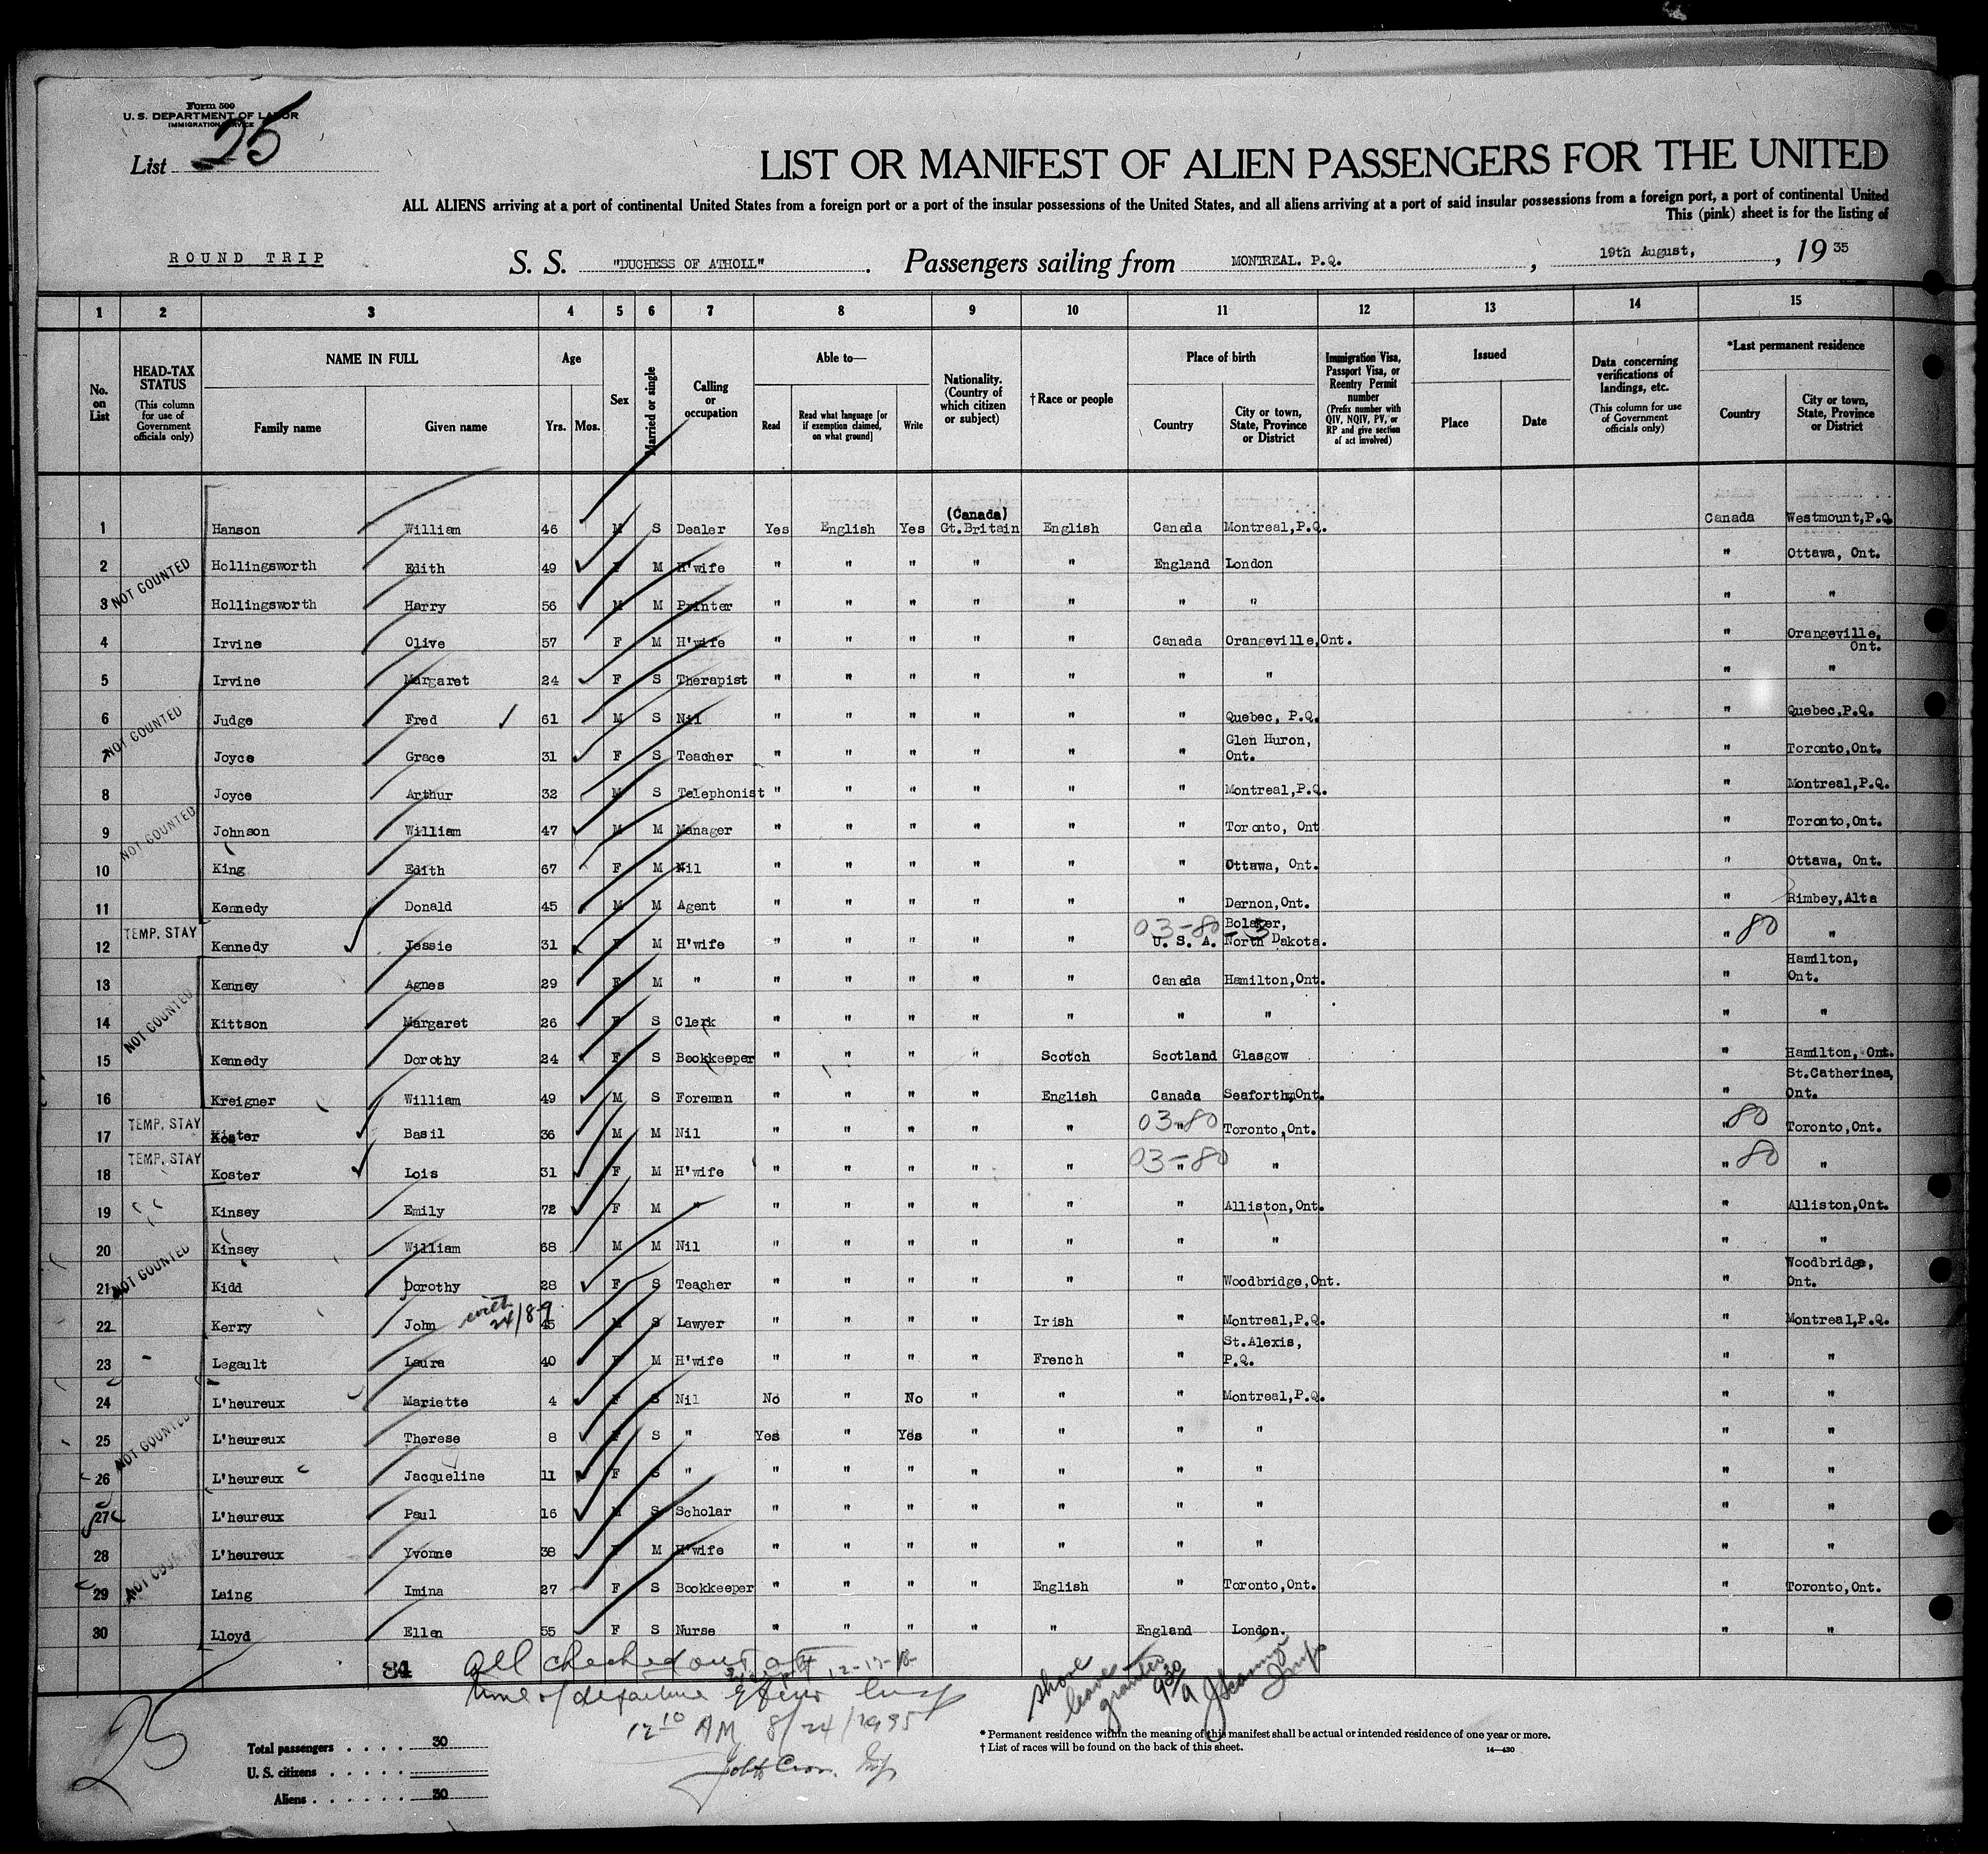 Form 500
U. S. DEPARTMENT OF LABOR
IMMIGRATION SERVICE
List 25
LIST OR MANIFEST OF ALIEN PASSENGERS FOR THE UNITED
ALL ALIENS arriving at a port of continental United States from a foreign port or a port of the insular possessions of the United States, and all aliens arriving at a port of said insular possessions from a foreign port, a port of continental United
This (pink) sheet is for the listing of
ROUND TRIP S. S. "DUCHESS OF ATHOLL". Passengers sailing from MONTREAL. P.Q. , 19th August, , 19 35
1 2 3 4 5 6 7 8 9 10 11 12 13 14 15
No. on List HEAD-TAX STATUS (This column for use of Government officials only) NAME IN FULL Family name Given name Age Yrs. Mos. Sex Married or single Calling or occupation Able to— Read Read what language [or if exemption claimed, on what ground] Write Nationality. (Country of which citizen or subject) †Race or people Place of birth Country City or town, State, Province or District Immigration Visa, Passport Visa, or Reentry Permit number (Prefix number with QIV, NQIV, PV, or RP and give section of act involved) Issued Place Date Data concerning verifications of landings, etc. (This column for use of Government officials only) *Last permanent residence Country City or town, State, Province or District
1 Hanson William 46 M S Dealer Yes English Yes (Canada) Gt.Britain English Canada Montreal,P.Q. Canada Westmount,P.Q.
2 NOT COUNTED Hollingsworth Edith 49 F M H'wife " " " " " England London " Ottawa, Ont.
3 Hollingsworth Harry 56 M M Printer " " " " " " " " "
4 Irvine Olive 57 F M H'wife " " " " " Canada Orangeville,Ont. " Orangeville, Ont.
5 Irvine Margaret 24 F S Therapist " " " " " " " " "
6 NOT COUNTED Judge Fred 61 M S Nil " " " " " " Quebec, P.Q. " Quebec,P.Q.
7 Joyce Grace 31 F S Teacher " " " " " " Glen Huron, Ont. " Toronto,Ont.
8 Joyce Arthur 32 M S Telephonist " " " " " " Montreal,P.Q. " Montreal,P.Q.
9 NOT COUNTED Johnson William 47 M M Manager " " " " " " Toronto, Ont " Toronto,Ont.
10 King Edith 67 F M Nil " " " " " " Ottawa, Ont. " Ottawa, Ont.
11 Kennedy Donald 45 M M Agent " " " " " " Dernon,Ont. " Rimbey,Alta
12 TEMP. STAY Kennedy Jessie 31 F M H'wife " " " " " 03-80-3 U. S. A. North Dakota. " 80 "
13 Kenney Agnes 29 F M " " " " " " Canada Hamilton,Ont. " Hamilton, Ont.
14 NOT COUNTED Kittson Margaret 26 F S Clerk " " " " " " " " "
15 Kennedy Dorothy 24 F S Bookkeeper " " " " Scotch Scotland Glasgow " Hamilton, Ont.
16 Kreigner William 49 M S Foreman " " " " English Canada Seaforth,Ont. " St.Catherines, Ont.
17 TEMP. STAY Koster Basil 36 M M Nil " " " " " 03-80 " Toronto,Ont. " 80 Toronto,Ont.
18 TEMP. STAY Koster Lois 31 F M H'wife " " " " " 03-80 " " " 80 "
19 Kinsey Emily 72 F M " " " " " " " Alliston,Ont. " Alliston,Ont.
20 Kinsey William 68 M M Nil " " " " " " " " "
21 NOT COUNTED Kidd Dorothy 28 F S Teacher " " " " " " Woodbridge,Ont. " Woodbridge, Ont.
22 Kerry John 24/8-9 45 M S Lawyer " " " " Irish " Montreal,P.Q. " Montreal,P.Q.
23 Legault Laura 40 F M H'wife " " " " French " St.Alexis, P.Q. " "
24 L'heureux Mariette 4 F S Nil No " No " " " Montreal,P.Q. " "
25 NOT COUNTED L'heureux Therese 8 F S " Yes " Yes " " " " " "
26 L'heureux Jacqueline 11 F S " " " " " " " " " "
27 L'heureux Paul 16 M S Scholar " " " " " " " " "
28 L'heureux Yvonne 38 F M H'wife " " " " " " " " "
29 NOT COUNTED Laing Imina 27 F S Bookkeeper " " " " English " Toronto,Ont. " Toronto,Ont.
30 Lloyd Ellen 55 F S Nurse " " " " " England London. " "
84 all checked out at
time of departure
12 10 AM 8/24/1935
shore leave granted 9 30/a
25
Total passengers . . . . . 30
U. S. citizens . . . . .
Aliens . . . . . . 30
* Permanent residence within the meaning of this manifest shall be actual or intended residence of one year or more.
† List of races will be found on the back of this sheet.
14—430